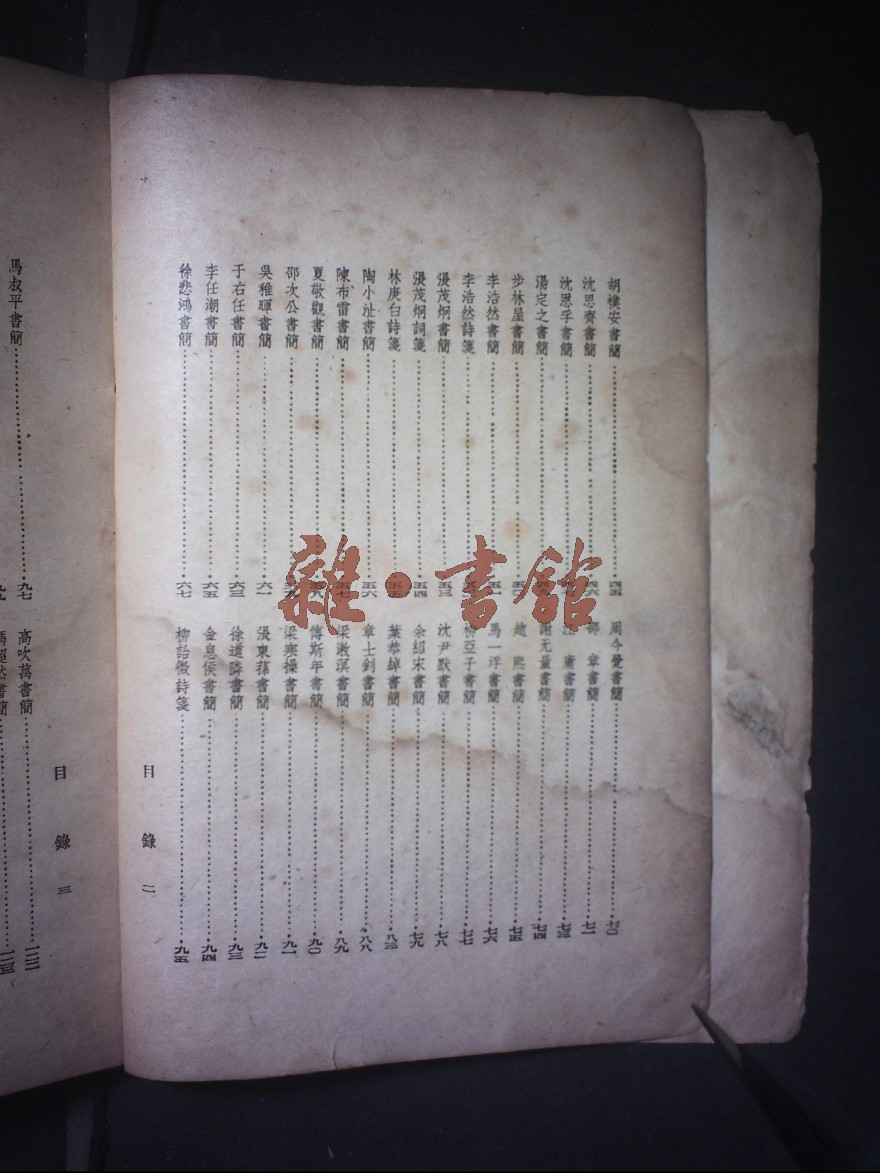 胡樸安書簡 四五
沈思齊書簡 四六
沈恩孚書簡
湯定之書簡
步林屋書簡 五〇
李浩然書簡 五一
李浩然詩箋
張茂炯書簡 五三
張茂炯詞箋 五四
林庚白詩箋 五五
陶小沚書簡 五六
陳布雷書簡 五七
夏敬觀書簡 五八
邵次公書簡
吳稚暉書簡 六一
于右任書簡 六三
李任潮書簡 六五
徐悲鴻書簡 六七
周今覺書簡 七〇
邵 章書簡 七一
江 庸書簡 七三
謝无量書簡 七四
趙 熙書簡 七五
馬一浮書簡 七六
柳亞子書簡 七七
沈尹默書簡 七八
余紹宋書簡 七九
葉恭綽書簡 八三
章士釗書簡 八八
梁漱溟書簡 八九
傅斯年書簡 九〇
梁寒操書簡 九一
張東蓀書簡 九二
徐道隣書簡 九三
金息侯書簡 九四
柳詒徵詩箋 九五
目錄 二
目錄 三
馬叔平書簡 九七
高吹萬書簡
馮超然書簡
雜·書館